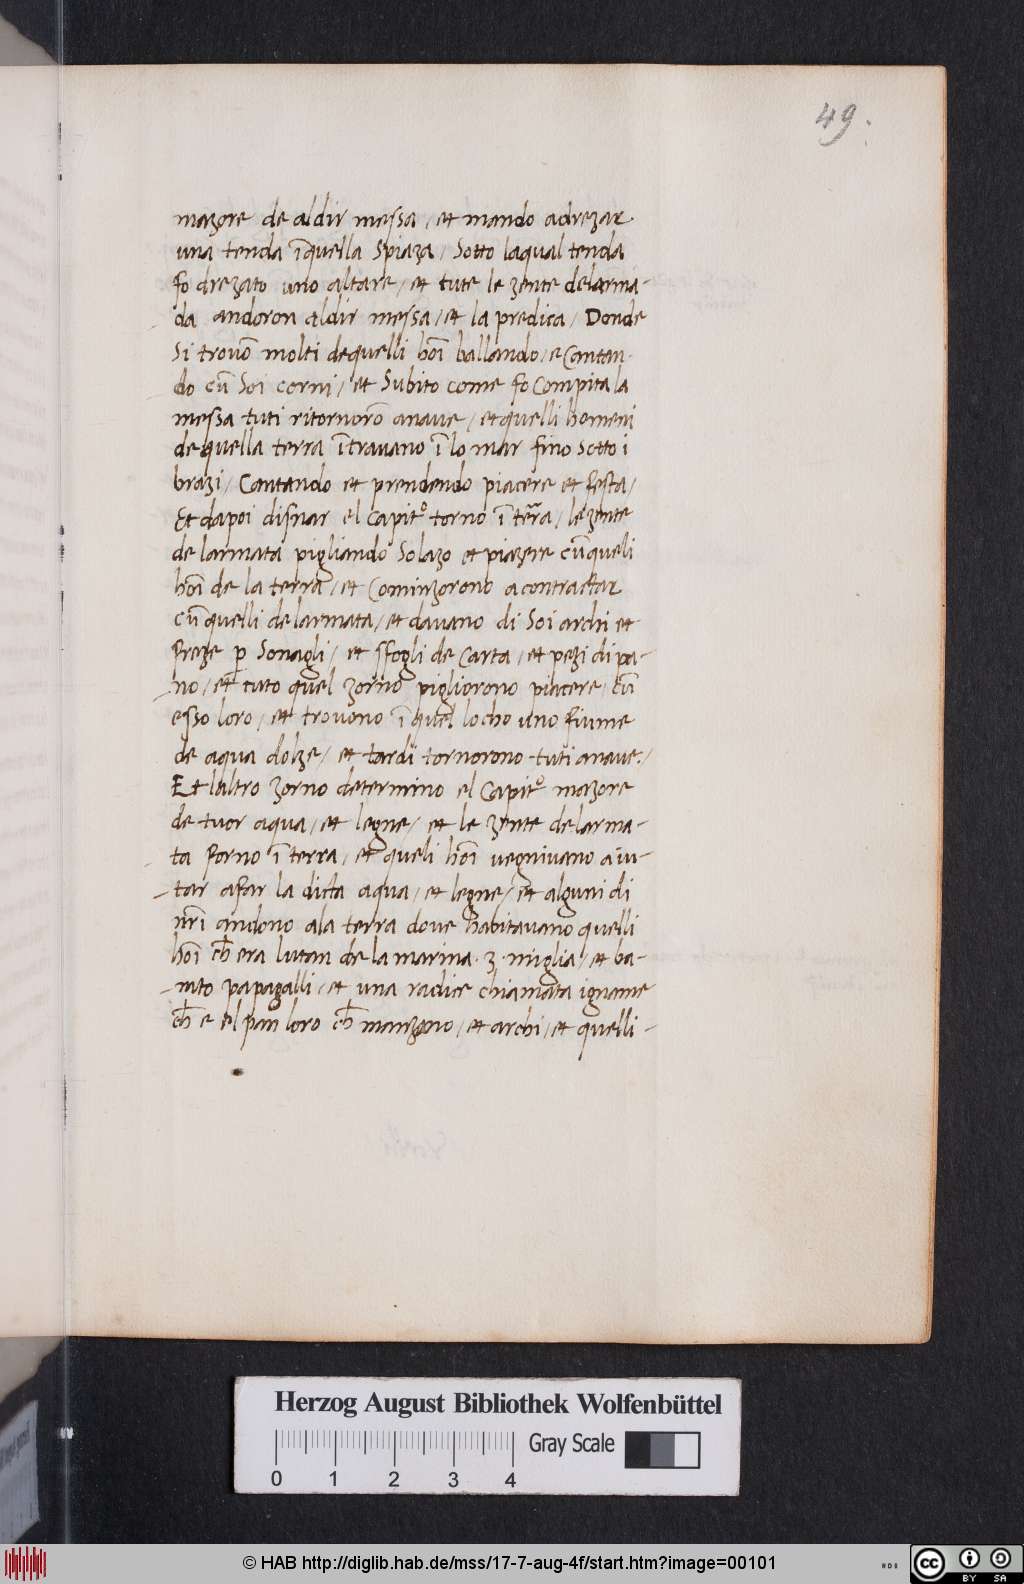 49.
mazore de aldir messa / et mando adrezar
una tenda ī quella Spiaza / Sotto laqual tenda
fo drezato uno altare / et tute le zente delarma-
da andoron aldir messa / et la predica / Donde
Si trovō molti dequelli hoī ballando / e Cantan-
do cū Soi corni / et Subito come fo Compita la
messa tuti ritornorō anaue / et quelli homeni
de quella terra ītravano ī lo mar fino Sotto i
brazi / Cantando et prendendo piacere et festa /
Et dapoi disnar el Capit° torno ī terra / le zente
de larmata pigliando Solazo et piazere cū queli
hoī de la terra / et Cominzorono a contractar
cū quelli de larmata / et davano di Soi archi et
freze p Sonagli / et sfogli de Carta / et pezi di pa-
no / et tuto quel zorno pigliorono piacere / cū
esso loro / et trovono ī quel locho uno fiume
de aqua dolze / et tardi tornorono tuti anaue /
Et laltro zorno determino el Capit° mazore
de tuor aqua / et legne / et le zente de larma-
ta forno ī terra / et queli hoī vegnivano aiu-
tar afar la dicta aqua / et legne / et alguni di
nrī andono ala terra dove habitavano quelli
hoī ch era lutan de la marina · 3 · miglia / et ba-
rato papagalli / et una radice chiamata igname
ch e el pan loro ch manzano / et archi / et quelli -
Herzog August Bibliothek Wolfenbüttel
Gray Scale
0 1 2 3 4
© HAB http://diglib.hab.de/mss/17-7-aug-4f/start.htm?image=00101
cc BY SA